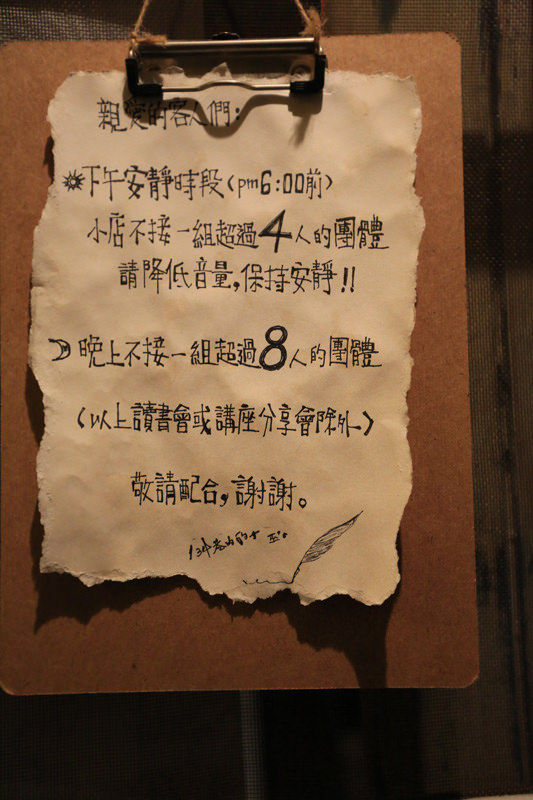 親愛的客人們：
下午安靜時段(pm6:00前)
小店不接一組超過4人的團體
請降低音量,保持安靜!!
晚上不接一組超過8人的團體
(以上讀書會或講座分享會除外)
敬請配合,謝謝。